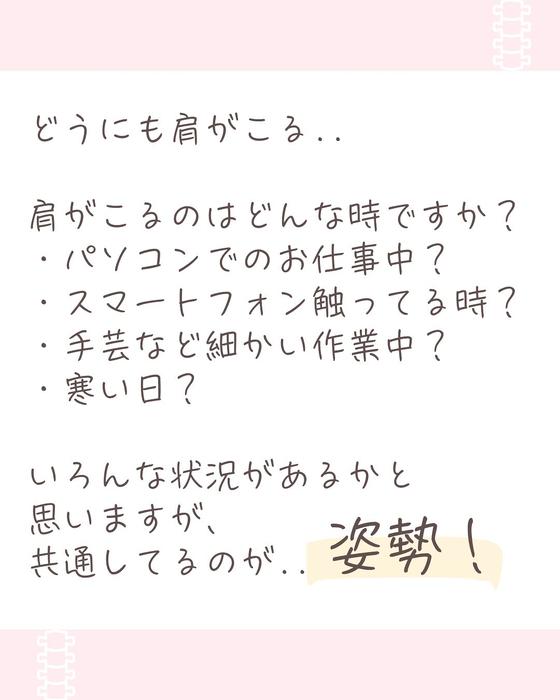 どうにも肩がこる..
肩がこるのはどんな時ですか？
・パソコンでのお仕事中？
・スマートフォン触ってる時？
・手芸など細かい作業中？
・寒い日？
いろんな状況があるかと
思いますが、
共通してるのが..姿勢！